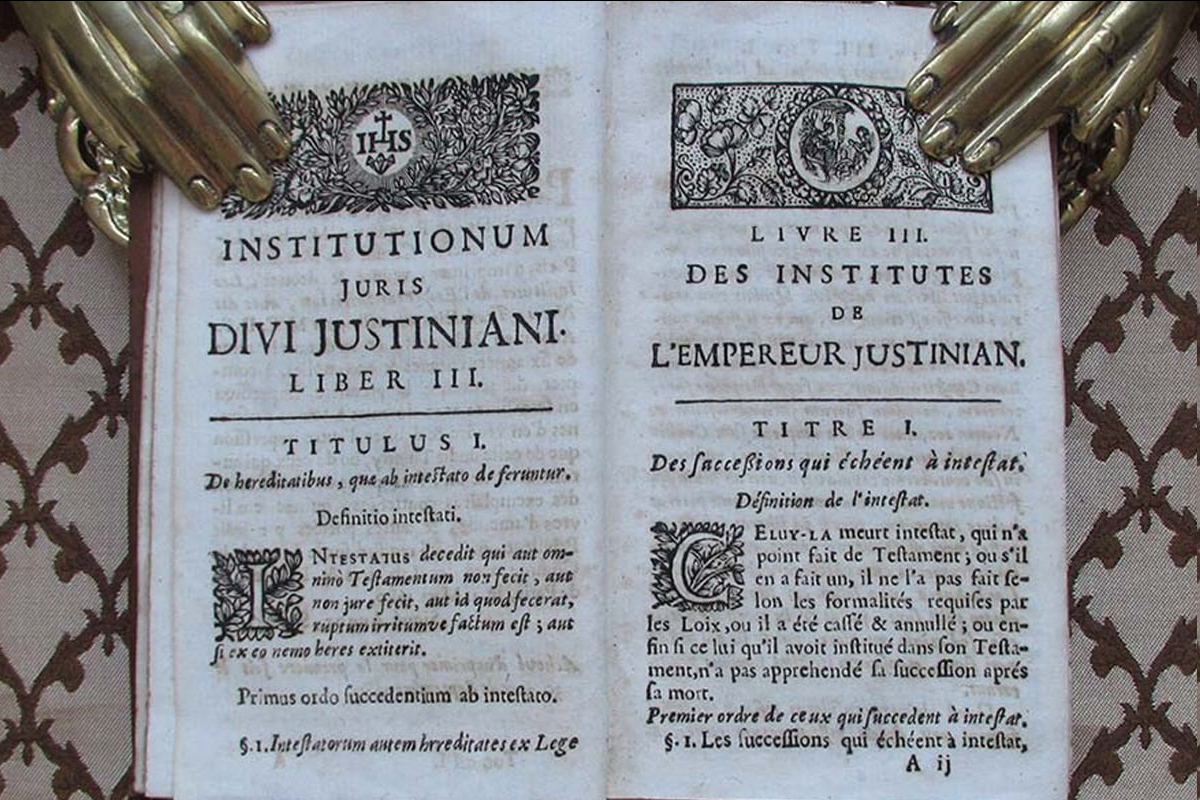 IHS
INSTITUTIONUM
JURIS
DIVI JUSTINIANI.
LIBER III.
TITULUS I.
De hereditatibus, quæ ab intestato deferuntur.
Definitio intestati.
INTESTATUS decedit qui aut om-
ninò Testamentum non fecit, aut
non jure fecit, aut id quod fecerat,
ruptum irritumve factum est; aut
si ex eo nemo heres extiterit.
Primus ordo succedentium ab intestato.
§. 1. Intestatorum autem hereditates ex Lege
LIVRE III.
DES INSTITUTES
DE
L'EMPEREUR JUSTINIAN.
TITRE I.
Des successions qui échéent à intestat.
Définition de l'intestat.
CELUY-LA meurt intestat, qui n'a
point fait de Testament; ou s'il
en a fait un, il ne l'a pas fait se-
lon les formalités requises par
les Loix, ou il a été cassé & annullé; ou en-
fin si ce lui qu'il avoit institué dans son Testa-
ment, n'a pas apprehendé sa succession aprés
sa mort.
Premier ordre de ceux qui succedent à intestat.
§. 1. Les successions qui échéent à intestat,
A ij